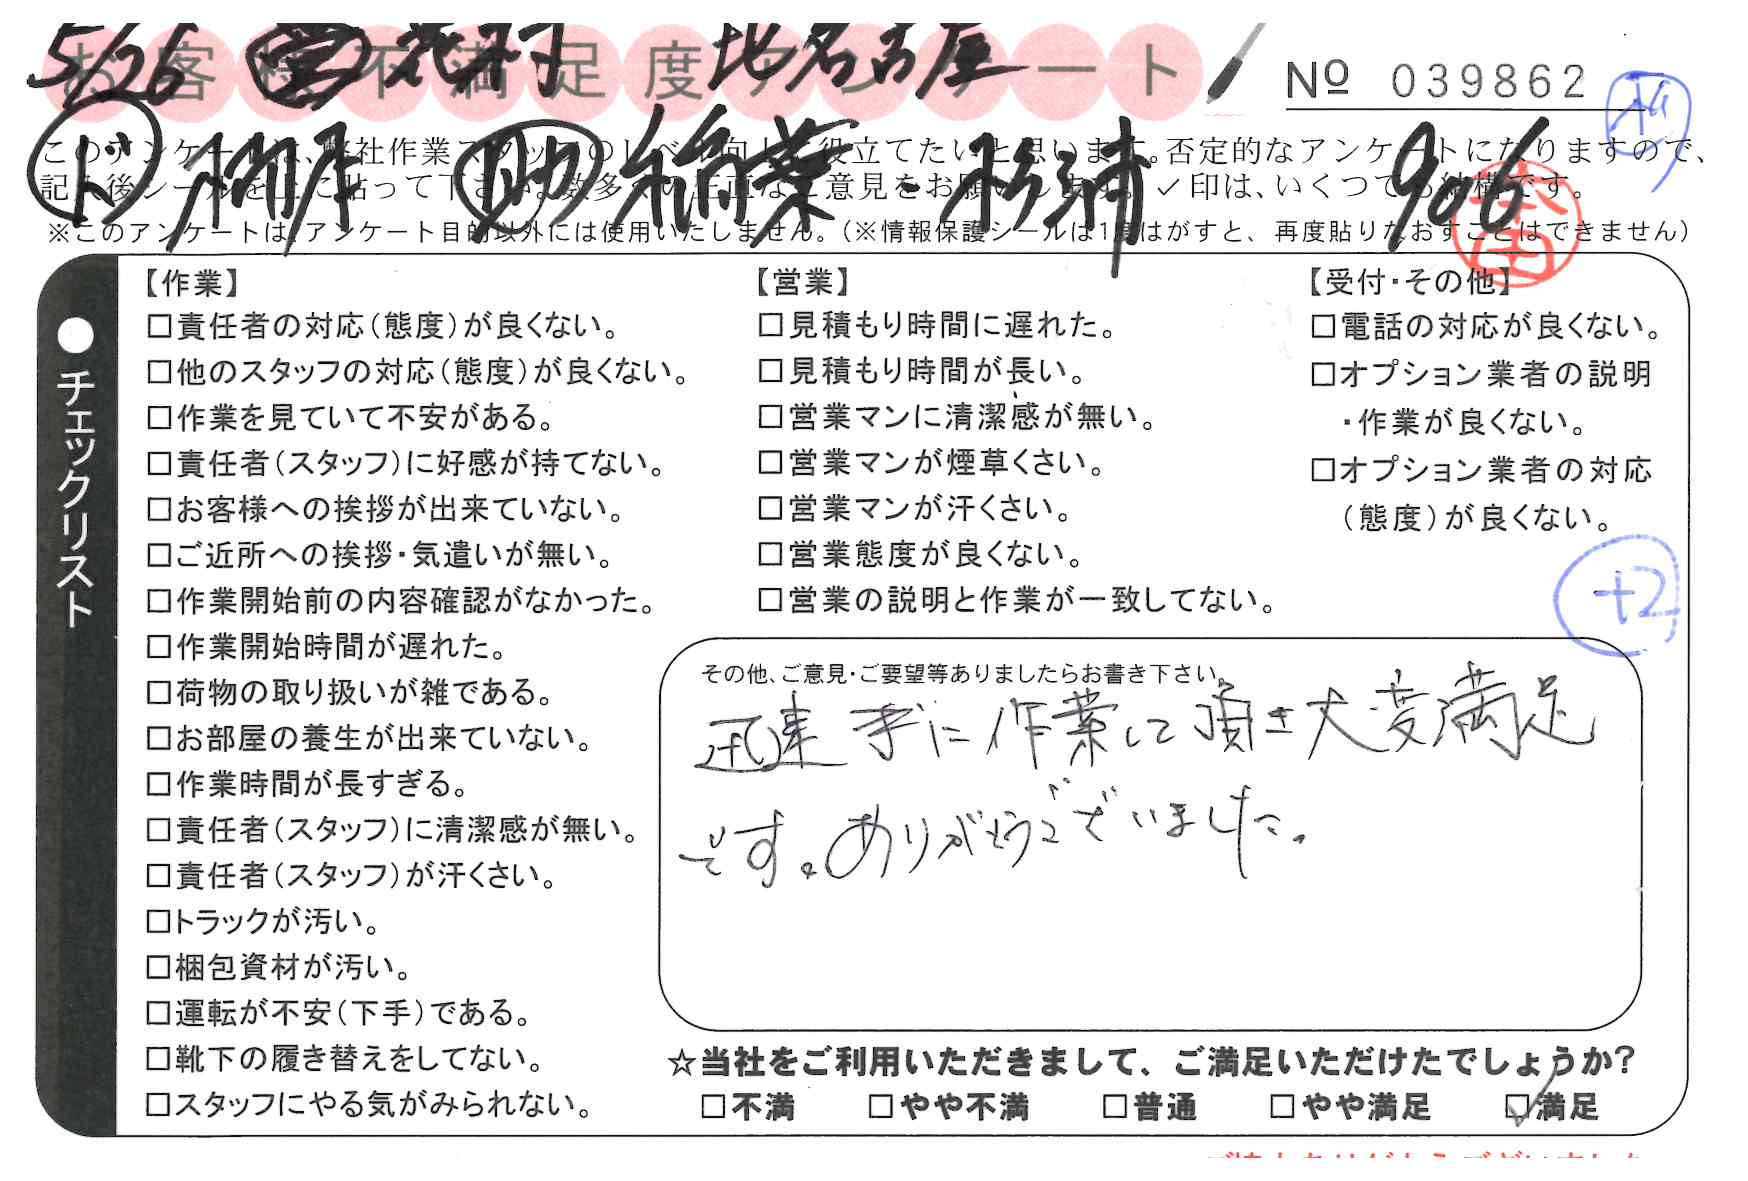 お客様不満足度アンケート
5/26 営 北名古屋
№ 039862
このアンケートは、弊社作業スタッフのレベル向上に役立てたいと思います。否定的なアンケートになりますので、
記入後シールを上に貼って下さい。数多くの正直なご意見をお願いします。✓印は、いくつでも結構です。
ド 助 稲葉 杉浦 906
※このアンケートは、アンケート目的以外には使用いたしません。（※情報保護シールは1度はがすと、再度貼りなおすことはできません）
●チェックリスト
【作業】
□責任者の対応（態度）が良くない。
□他のスタッフの対応（態度）が良くない。
□作業を見ていて不安がある。
□責任者（スタッフ）に好感が持てない。
□お客様への挨拶が出来ていない。
□ご近所への挨拶・気遣いが無い。
□作業開始前の内容確認がなかった。
□作業開始時間が遅れた。
□荷物の取り扱いが雑である。
□お部屋の養生が出来ていない。
□作業時間が長すぎる。
□責任者（スタッフ）に清潔感が無い。
□責任者（スタッフ）が汗くさい。
□トラックが汚い。
□梱包資材が汚い。
□運転が不安（下手）である。
□靴下の履き替えをしてない。
□スタッフにやる気がみられない。
【営業】
□見積もり時間に遅れた。
□見積もり時間が長い。
□営業マンに清潔感が無い。
□営業マンが煙草くさい。
□営業マンが汗くさい。
□営業態度が良くない。
□営業の説明と作業が一致してない。
【受付・その他】
□電話の対応が良くない。
□オプション業者の説明
・作業が良くない。
□オプション業者の対応
（態度）が良くない。
+2
その他、ご意見・ご要望等ありましたらお書き下さい。
迅速丁寧に作業して頂き大変満足
です。ありがとうございました。
☆当社をご利用いただきまして、ご満足いただけたでしょうか？
□不満 □やや不満 □普通 □やや満足 ☑満足